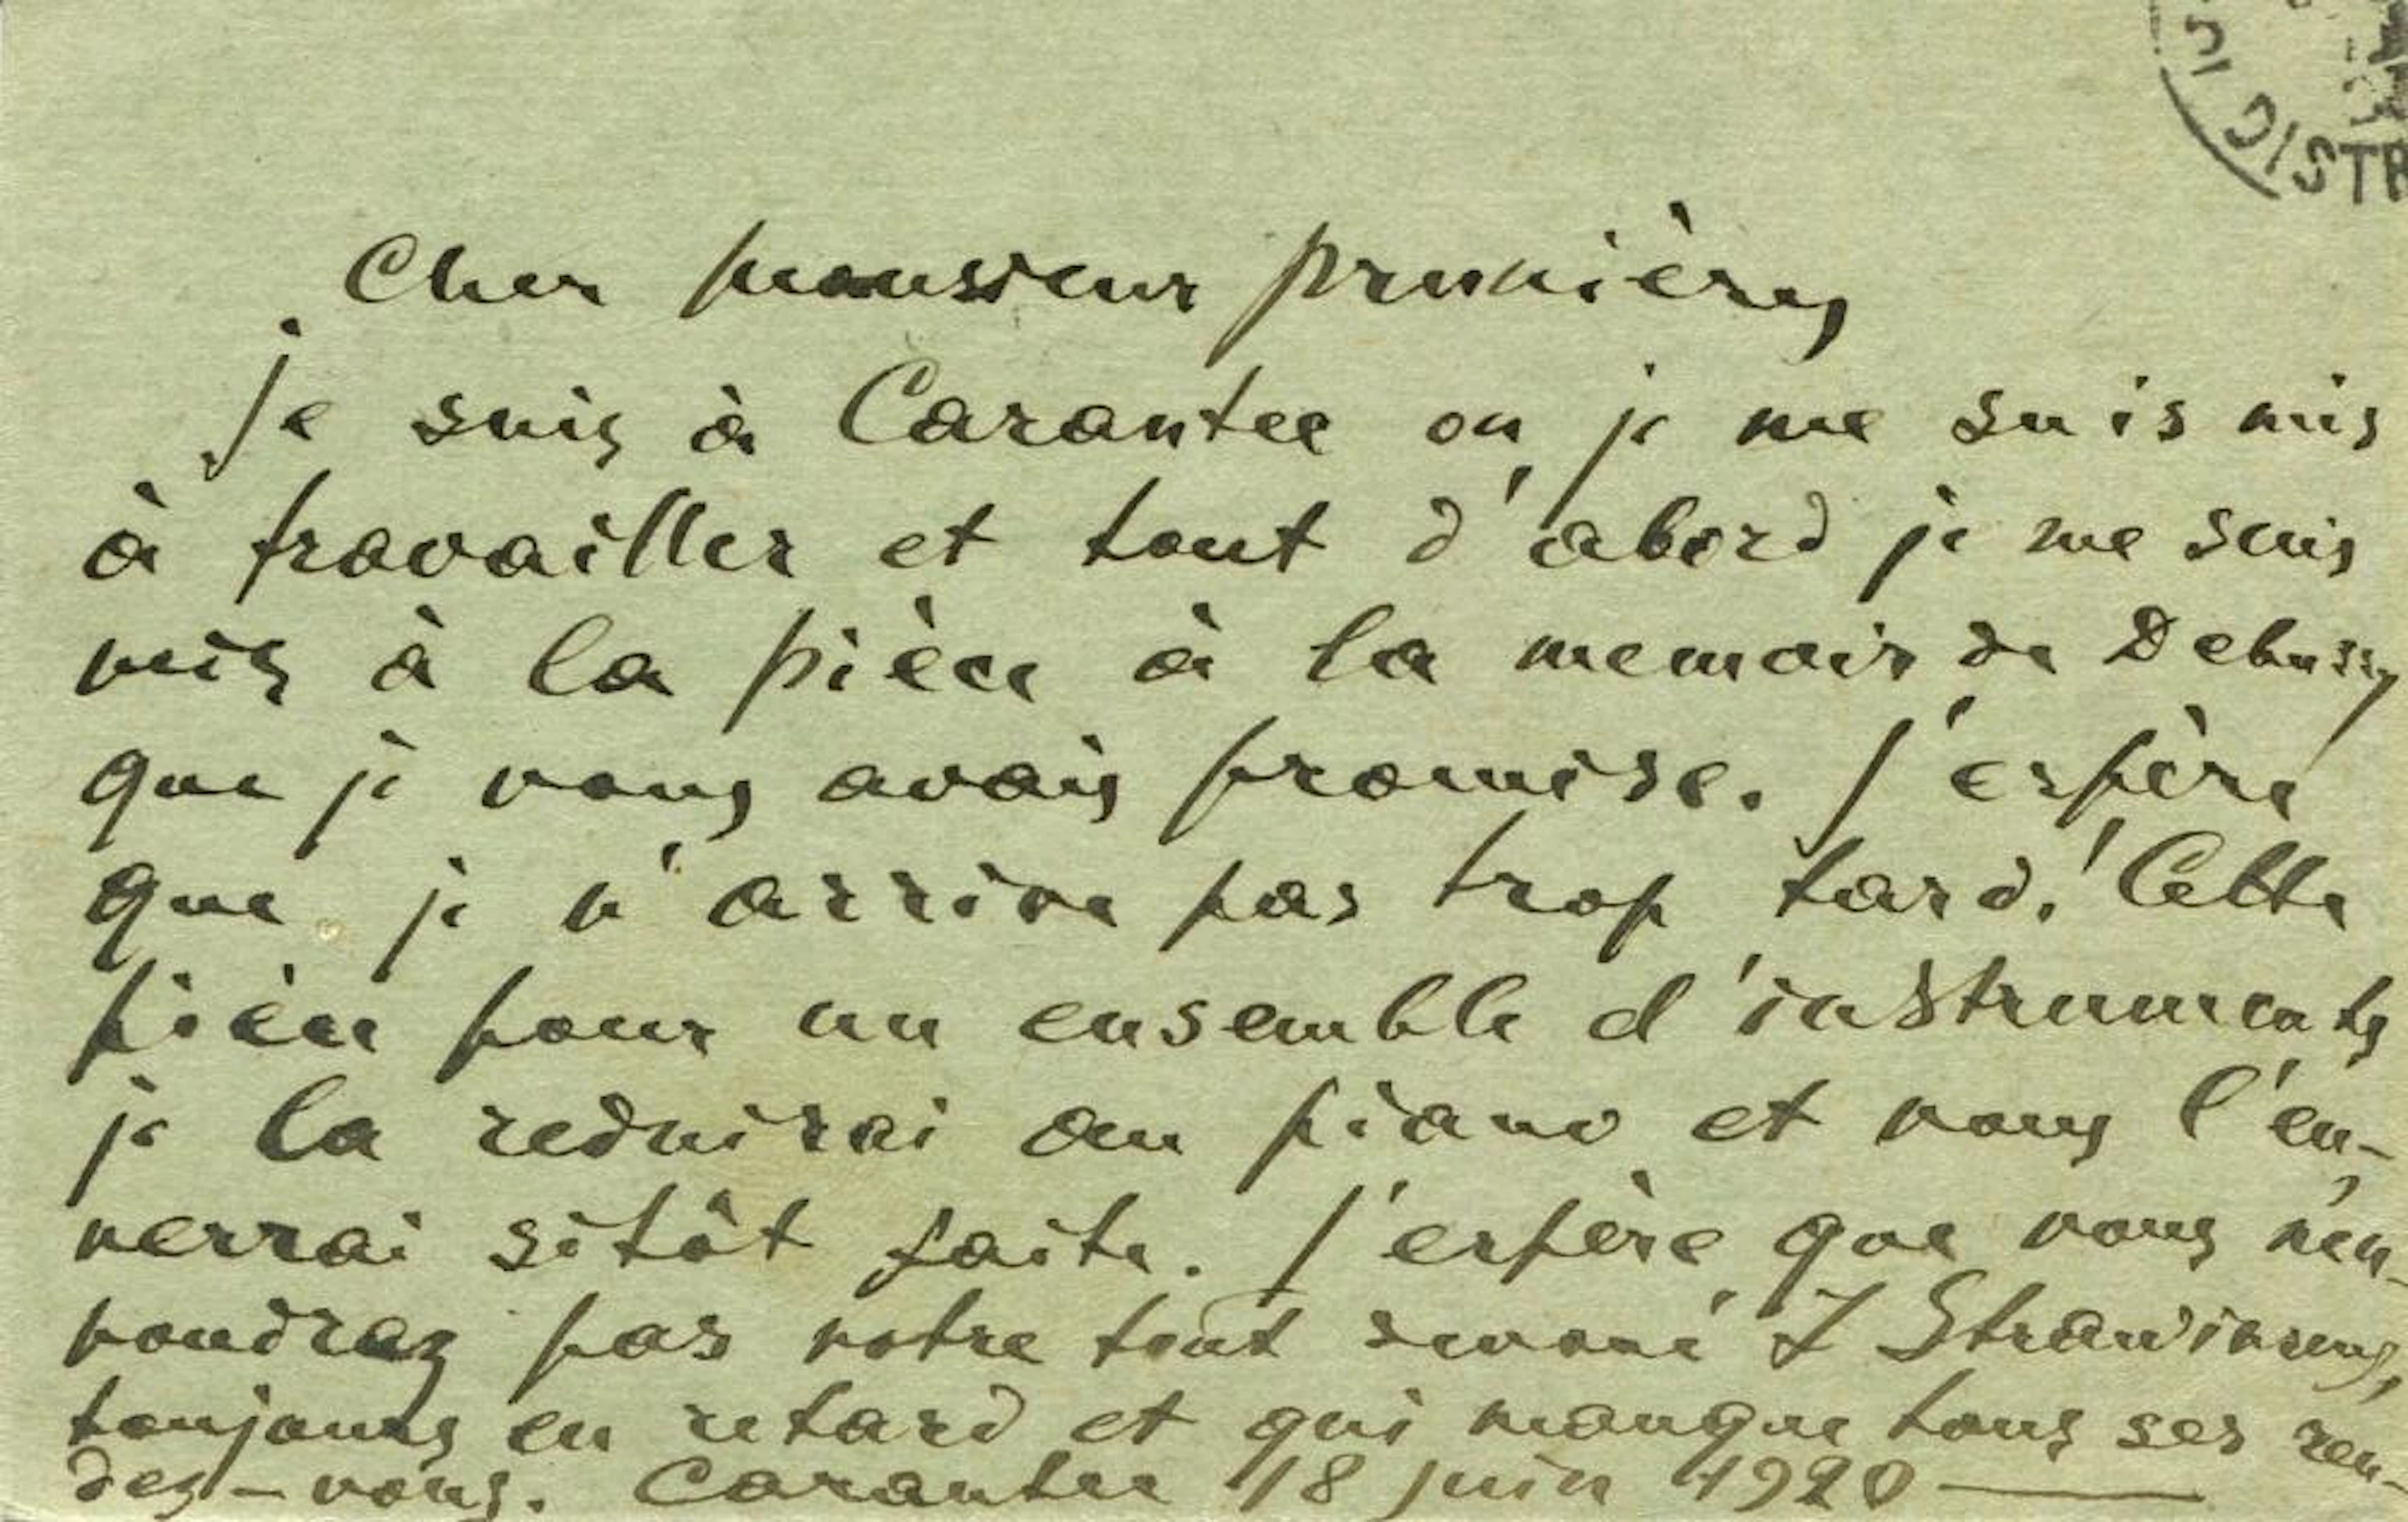 DISTR
Cher monsieur Prunières
je suis à Carantec ou je me suis mis
à travailler et tout d'abord je me suis
mis à la pièce à la memoir de Debussy
que je vous avais promise. J'espère
que je n'arrive pas trop tard! Cette
pièce pour un ensemble d'instruments
je la reduirai au piano et vous l'en-
verrai sitôt faite. J'espère que vous n'en
voudrez pas votre tout devoué I Strawinsky,
toujours en retard et qui manque tous ses ren-
dez-vous. Carantec 18 juin 1920